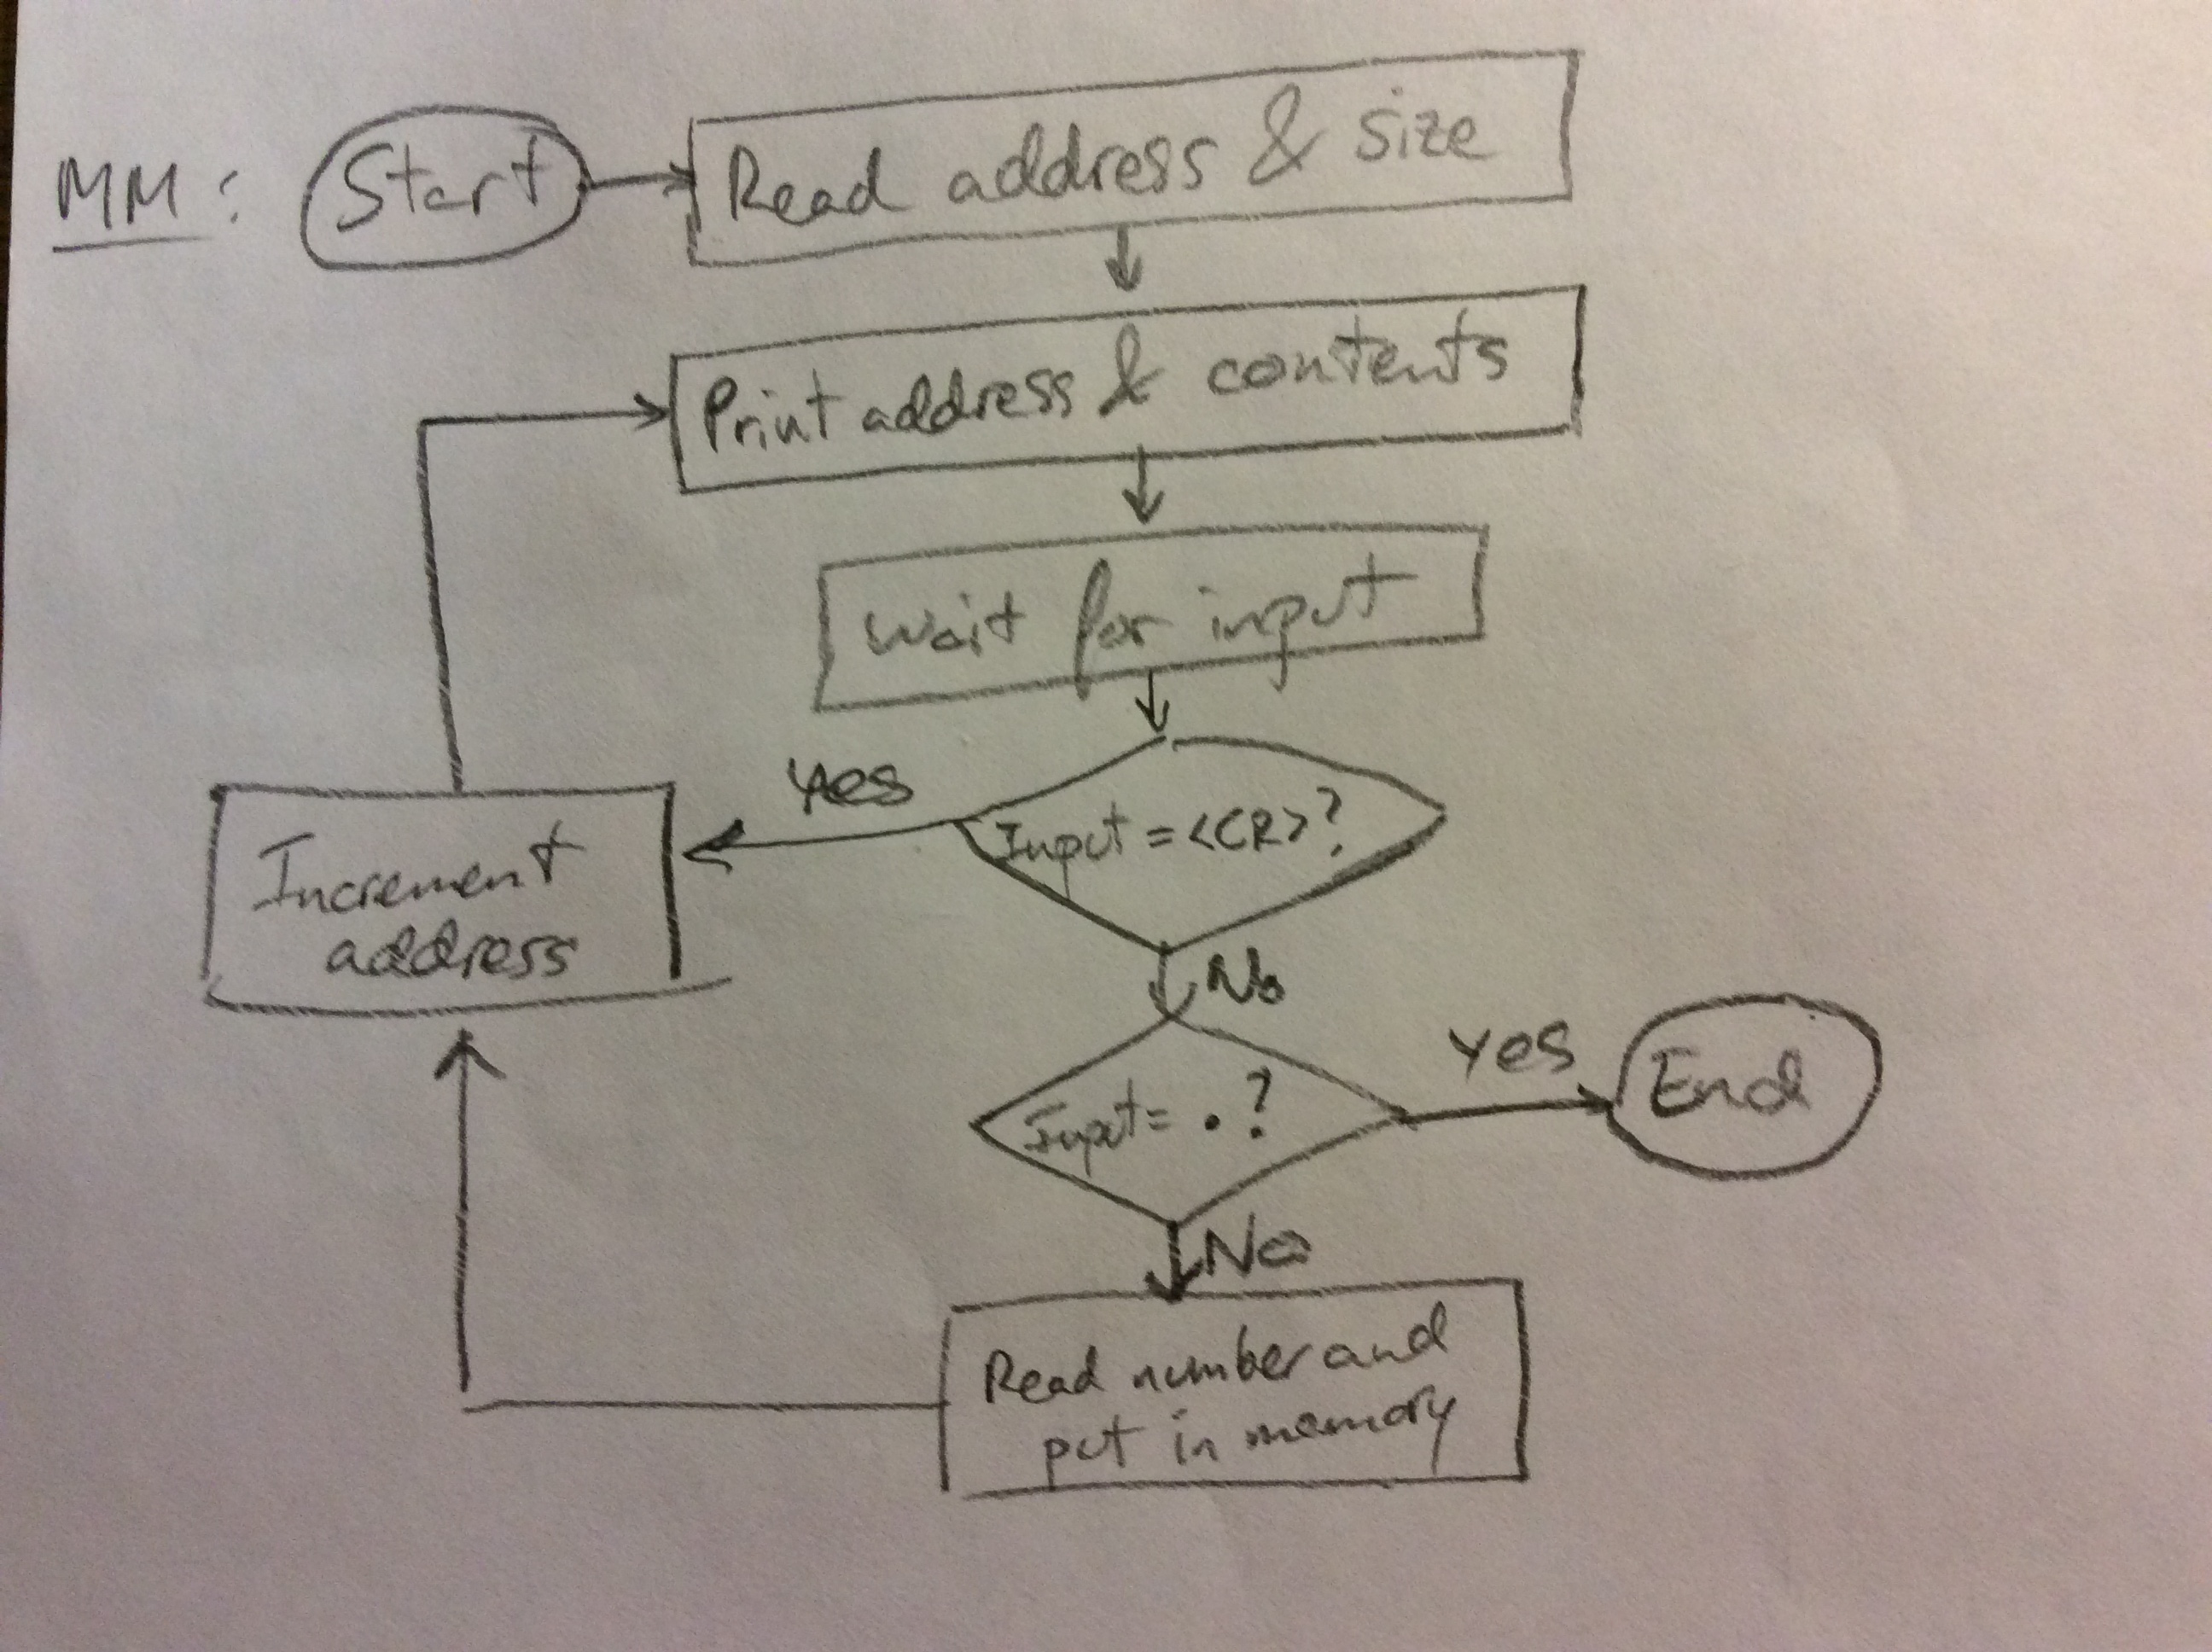 MM:
Start
Read address & size
Print address & contents
wait for input
Yes
Input = <CR>?
Increment
address
No
Input = . ?
Yes
End
No
Read number and
put in memory